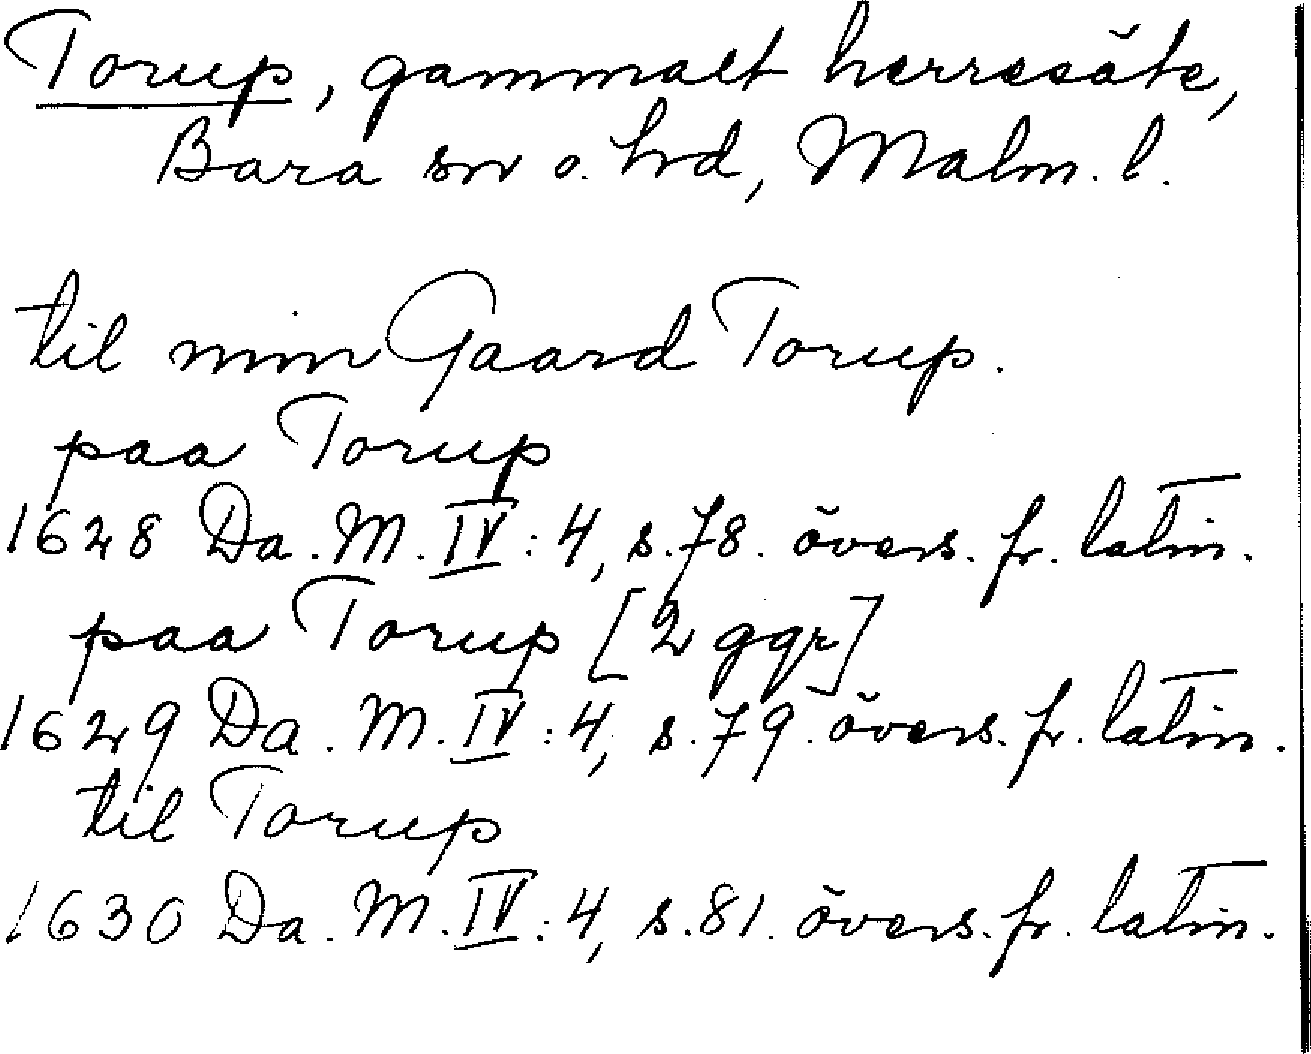 Torup, gammalt herresäte,
Bara sn o. hd, Malm. l.
til min Gaard Torup.
paa Torup
1628 Da. M. IV: 4, s. 78. övers. fr. latin.
paa Torup [2 ggr]
1629 Da. M. IV: 4, s. 79. övers. fr. latin.
til Torup
1630 Da. M. IV: 4, s. 81. övers. fr. latin.